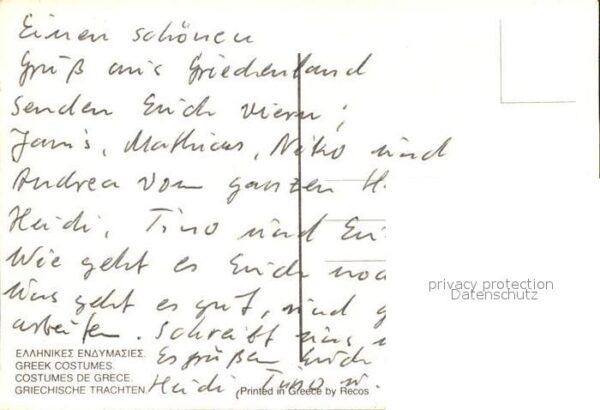 Einen schönen
Gruß aus Griechenland
senden Euch vieren,
Janis, Mathias, Niko und
Andrea vom ganzen H
Heidi, Tino und
Wie geht es Euch
Uns geht es gut, und
arbeiten. Schreibt uns
Es grüßen Euch
Heidi, Tino u.
ΕΛΛΗΝΙΚΕΣ ΕΝΔΥΜΑΣΙΕΣ.
GREEK COSTUMES.
COSTUMES DE GRECE.
GRIECHISCHE TRACHTEN
Printed in Greece by Recos
privacy protection
Datenschutz